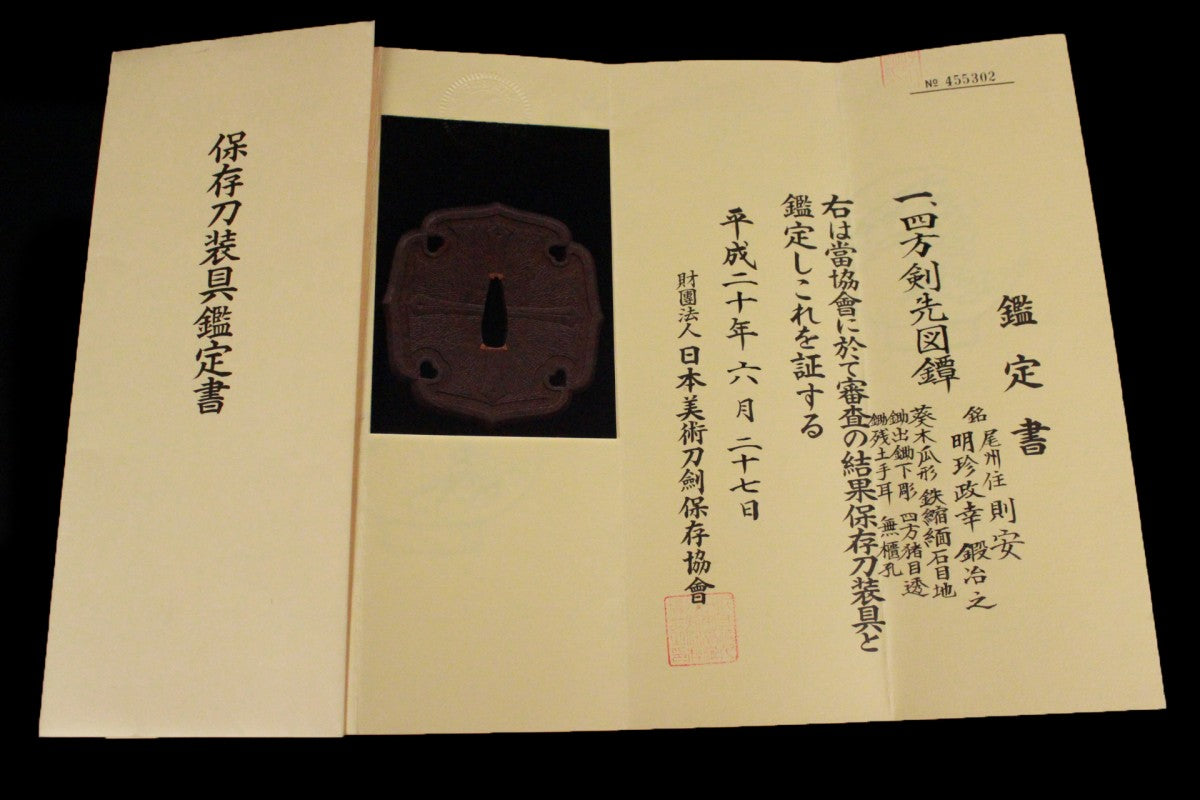 保存刀装具鑑定書
№ 455302
鑑定書
一、四方剣先図鐔
銘 尾州住則安
明珍政幸鍛冶之
葵木瓜形 鉄縮緬石目地
鋤出鋤下彫 四方猪目透
鋤残土手耳 無櫃孔
右は當協會に於て審査の結果保存刀装具と
鑑定しこれを証する
平成二十年六月二十七日
財團法人日本美術刀劍保存協會